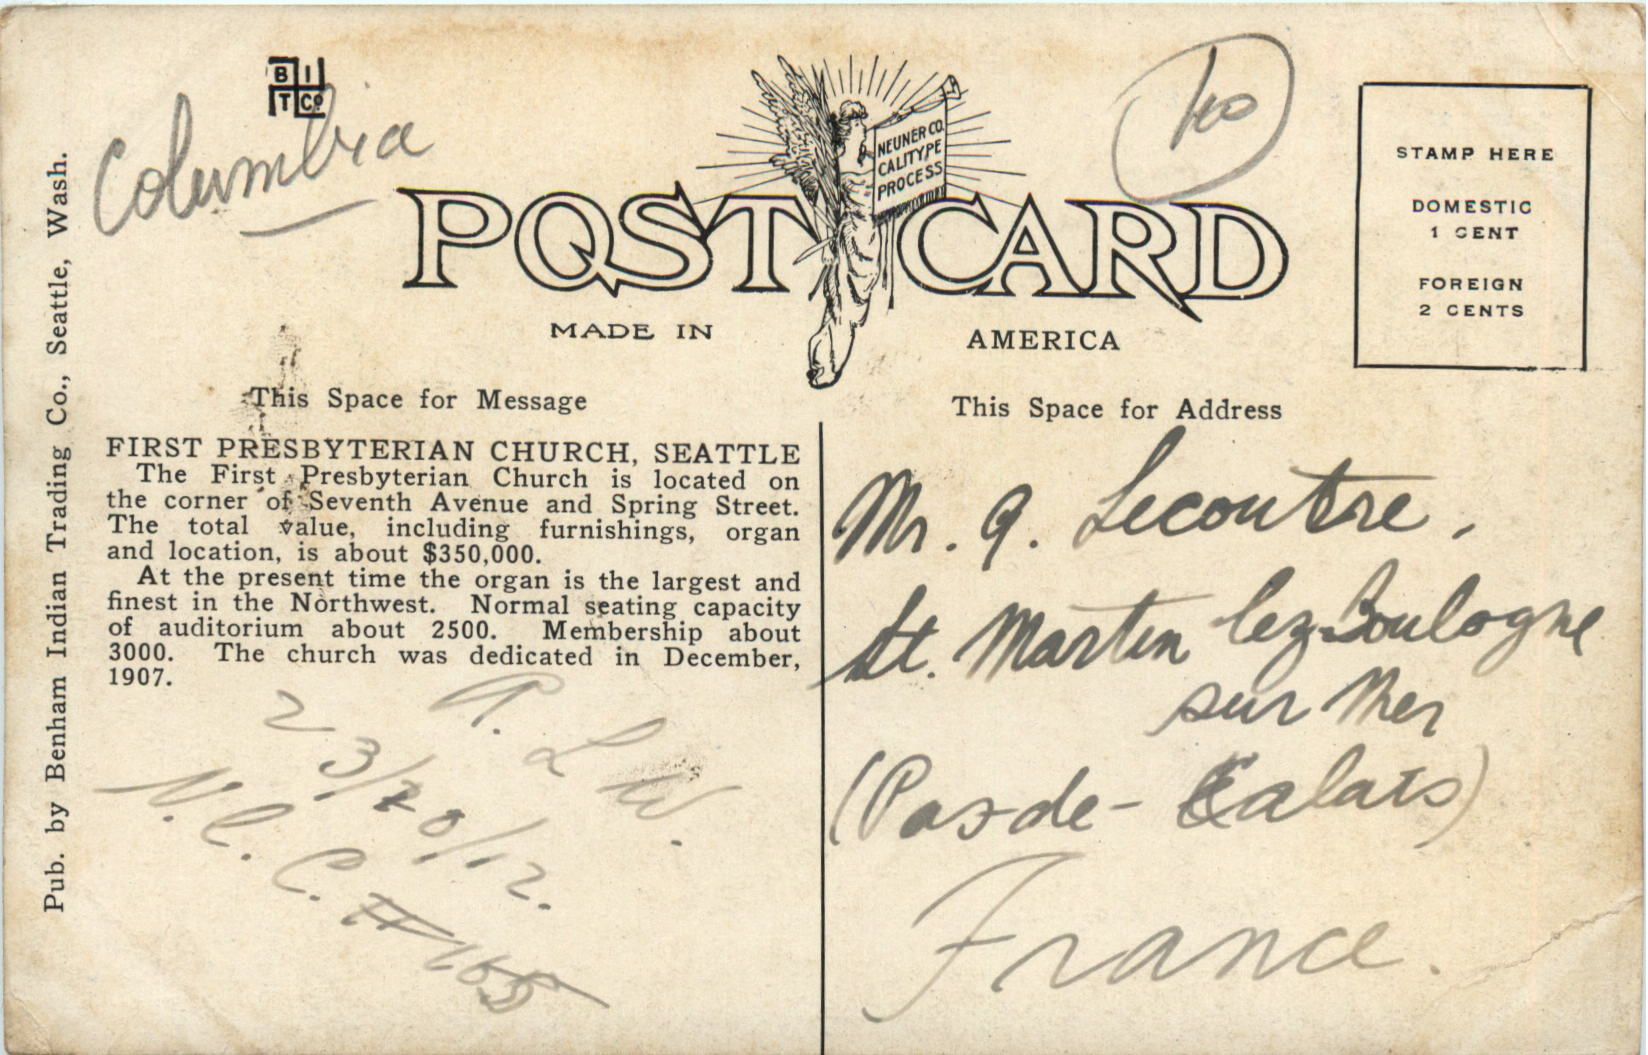 Pub. by Benham Indian Trading Co., Seattle, Wash.
B I
T Co
Columbia
10
NEUNER CO.
CALITYPE
PROCESS
POST CARD
MADE IN AMERICA
STAMP HERE
DOMESTIC
1 CENT
FOREIGN
2 CENTS
This Space for Message
FIRST PRESBYTERIAN CHURCH, SEATTLE
The First Presbyterian Church is located on
the corner of Seventh Avenue and Spring Street.
The total value, including furnishings, organ
and location, is about $350,000.
At the present time the organ is the largest and
finest in the Northwest. Normal seating capacity
of auditorium about 2500. Membership about
3000. The church was dedicated in December,
1907.
A. L W.
23/20/12.
N. C. C. #165
This Space for Address
Mr. G. Lecoutre,
St. Martin lez-Boulogne
sur Mer
(Pas-de-Calais)
France.